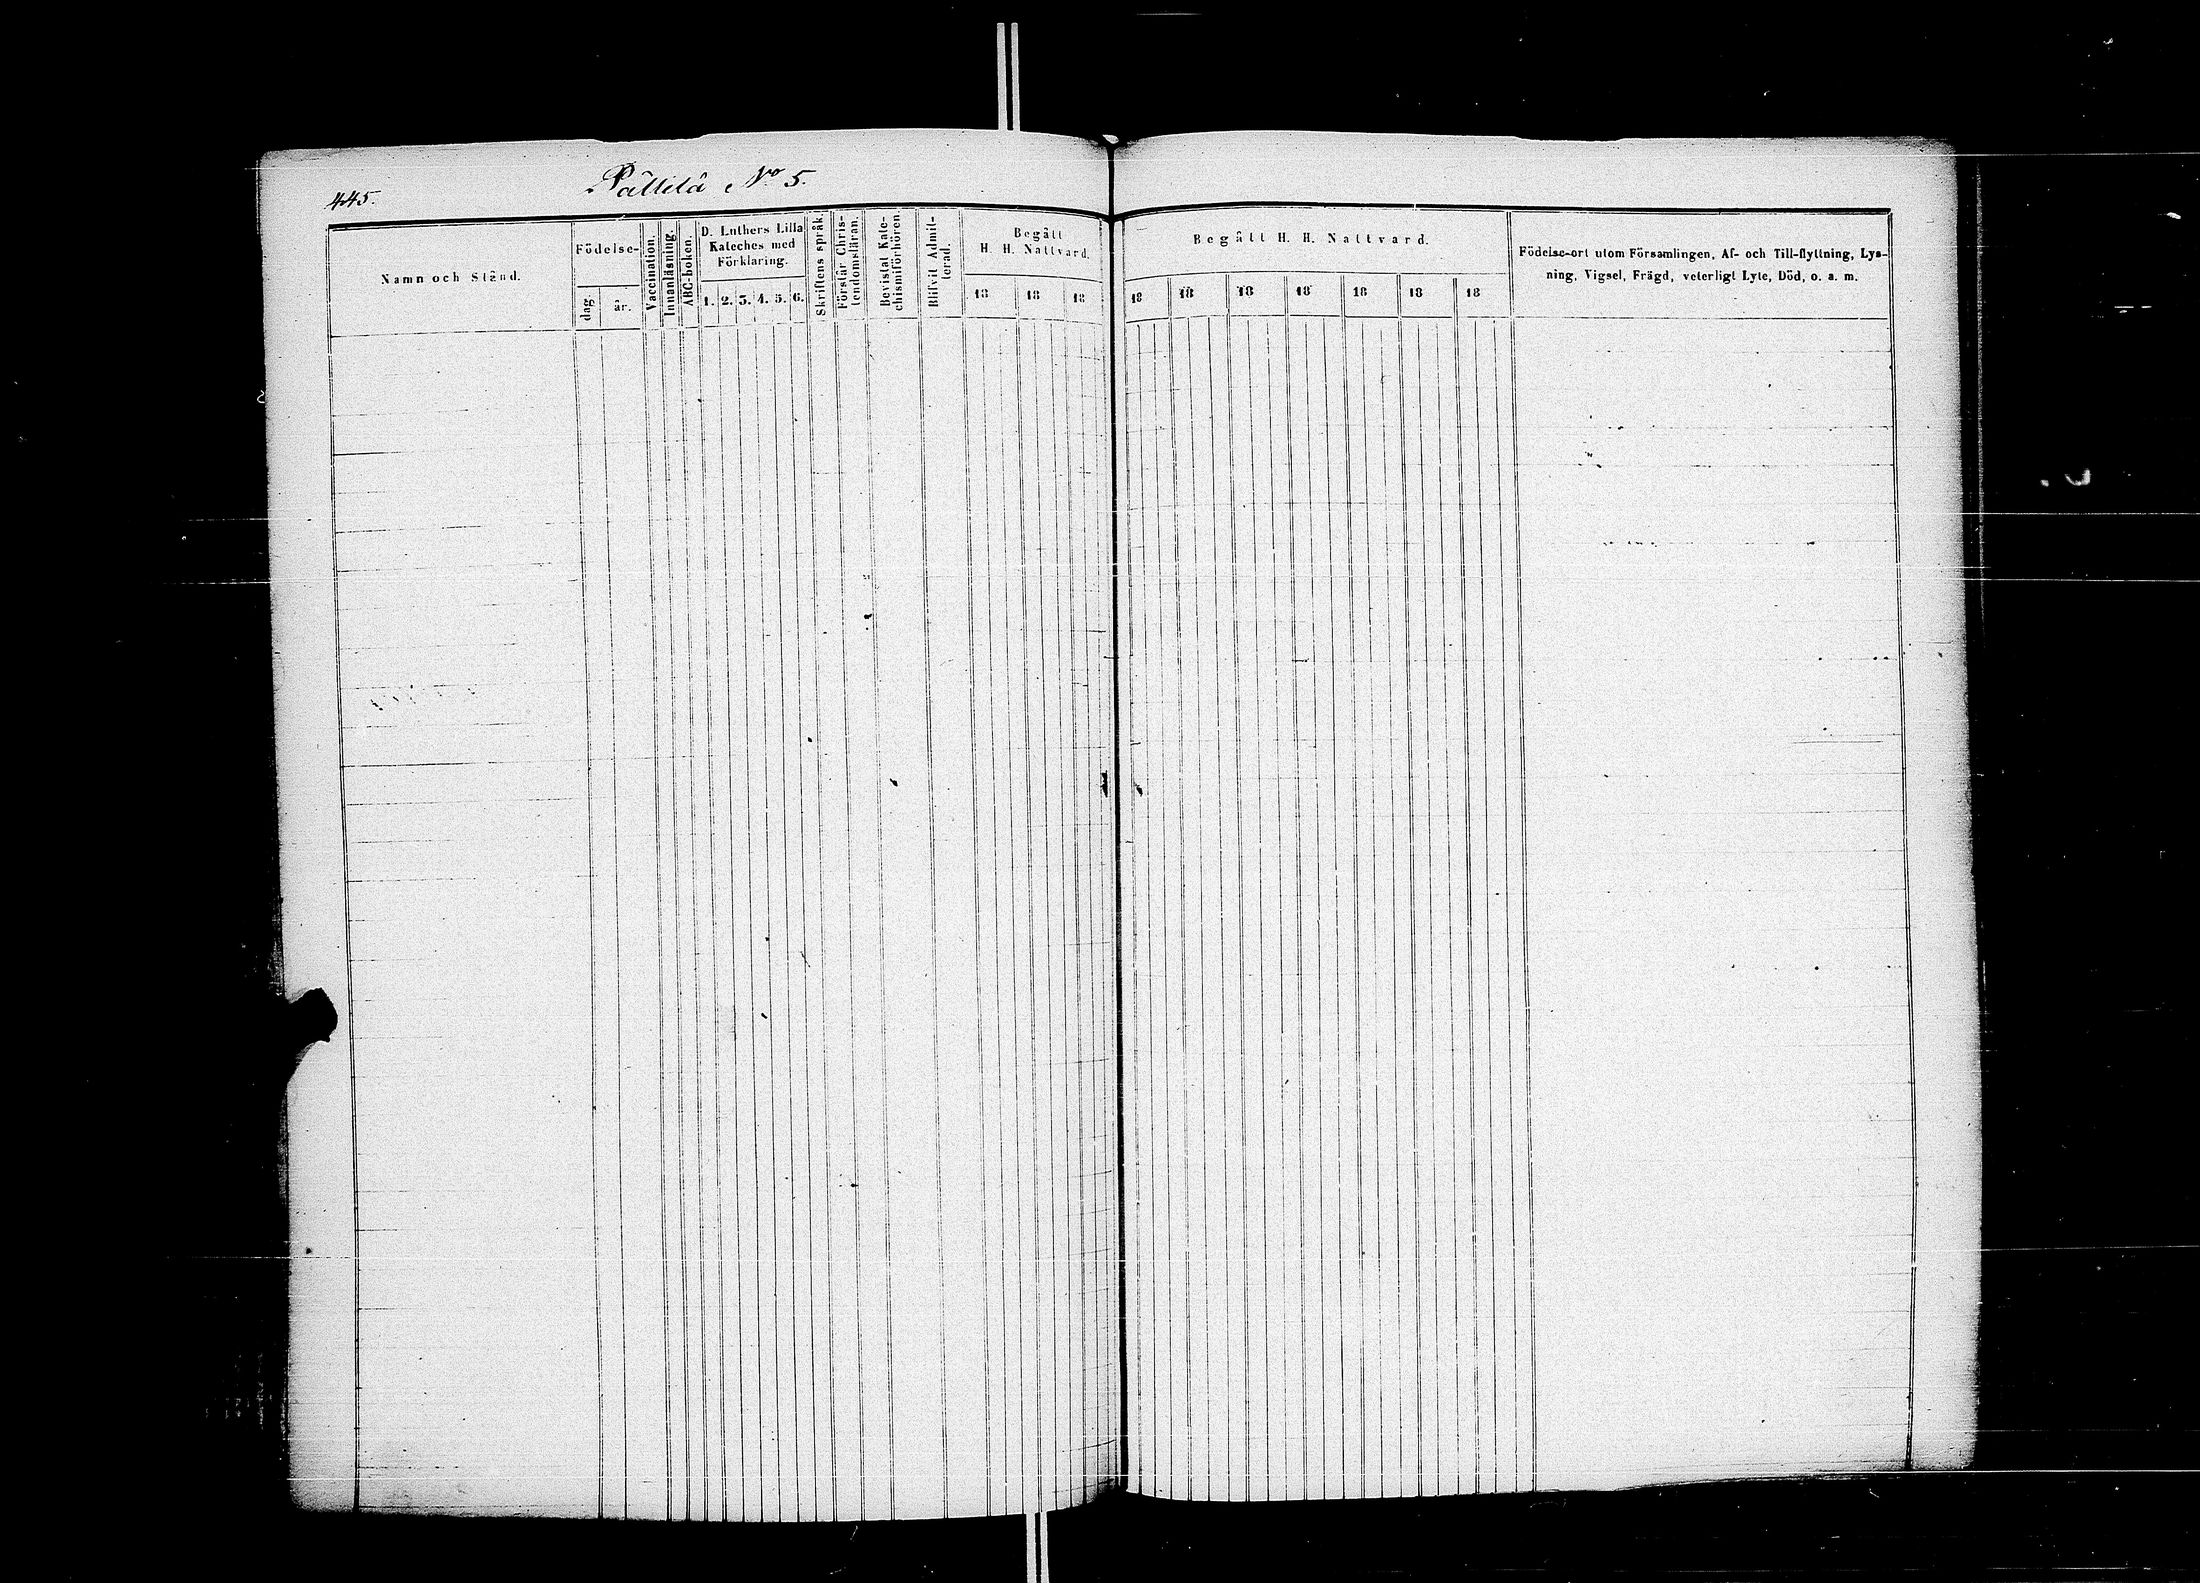 445.
Pättilä No 5.
Namn och Stånd.
Födelse-
dag.
år.
Vaccination.
Innanläsning.
ABC-boken.
D. Luthers Lilla
Kateches med
Förklaring.
1. 2. 3. 4. 5. 6.
Skriftens språk.
Förstår Chris-
tendomsläran.
Bevistat Kate-
chismiförhören.
Blifvit Admit-
terad.
Begått
H. H. Nattvard.
18 18 18
Begått H. H. Nattvard.
18 18 18 18 18 18 18
Födelse-ort utom Församlingen, Af- och Till-flyttning, Lys-
ning, Vigsel, Frägd, veterligt Lyte, Död, o. a. m.